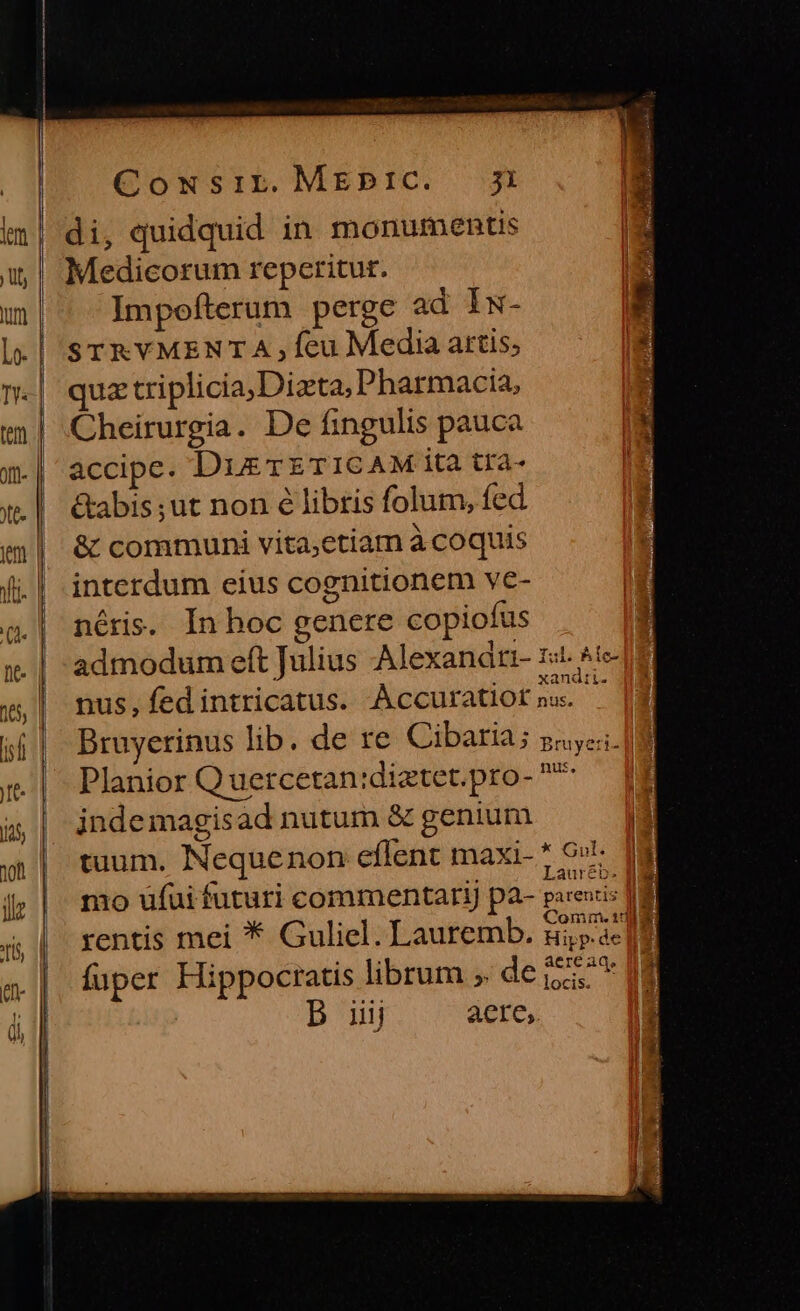 CONSIL. MEDIC. 31
di, quidquid in monumentis
Medicorum reperitur.
Impoſterum perge ad IN-
STRVMENTA, ſeu Media artis,
quæ triplicia, Diæta, Pharmacia,
Cheirurgia. De ſingulis pauca
accipe. DIÆTETICAM ita tra-
ctabis; ut non è libris ſolum, ſed
& communi vita, etiam à coquis
interdum eius cognitionem ve-
néris. In hoc genere copioſus
admodum eſt Julius Alexandri-
nus, ſed intricatus. Accuratior
Bruyerinus lib. de re Cibaria;
Planior Quercetan: diætet. pro-
inde magis ad nutum & genium
tuum. Neque non eſſent maxi-
mo uſui futuri commentarij pa-
rentis mei * Guliel. Lauremb.
ſuper Hippocratis librum, de
B iiij aere,
Iul. Ale-
xandri-
nus.
Bruyeri-
nus.
* Gul.
Lauréb.
parentis
Comm. in
Hipp. de
aere aq.
locis.
em
ut,
um
lo.
ry-
tem
om-
te.
em
ſti.
ca.
ne-
nes,
isſi
re-
ias,
non
illæ
ris,
en-
di,